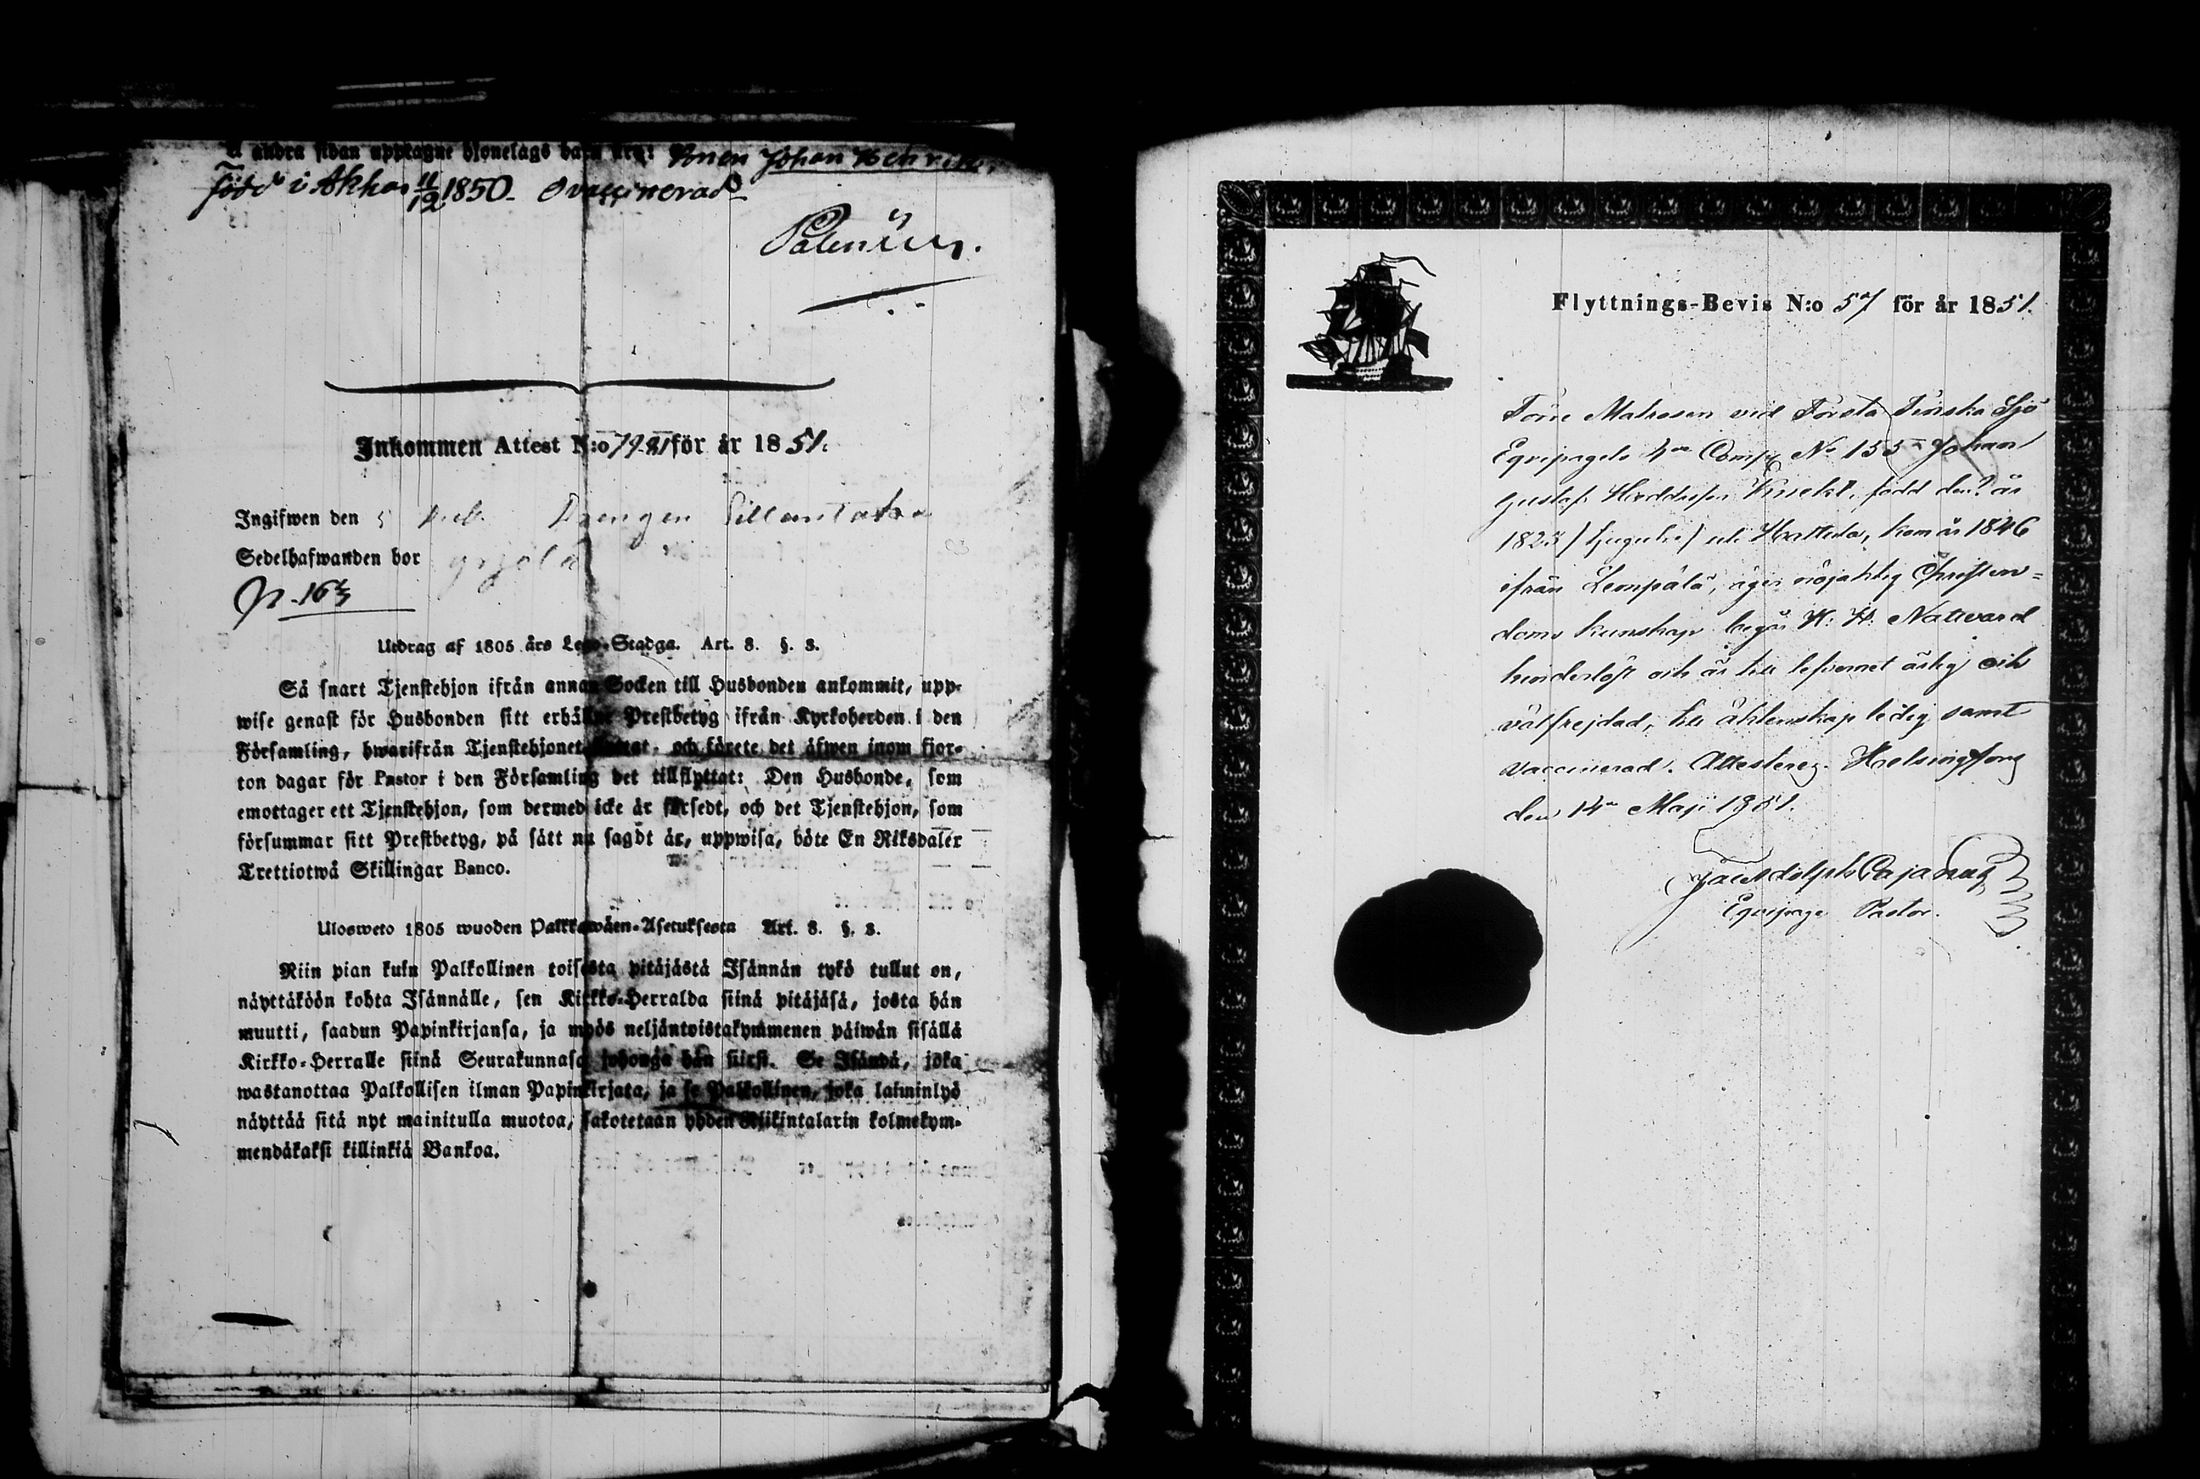 å andra sidan upptagne hjonelags barn äro: Sonen Johan Henrik,
född i Akkas 11/12 1850. Ovaccinerad
Palenius.
Inkommen Attest N:o 79-81 för år 1851.
Ingifwen den 5 Drengen
Sedelhafwanden bor
Utdrag af 1805 års Lego-Stadga. Art. 8. §. 3.
Så snart Tjenstehjon ifrån annan Socken till Husbonden ankommit, upp-
wise genast för Husbonden sitt erhållne Prestbetyg ifrån Kyrkoherden i den
Församling, hwarifrån Tjenstehjonet flyttat, och förete det äfwen inom fjor-
ton dagar för Pastor i den Församling det tillflyttat: Den Husbonde, som
emottager ett Tjenstehjon, som dermed icke är försedt, och det Tjenstehjon, som
försummar sitt Prestbetyg, på sätt nu sagdt är, uppwisa, böte En Riksdaler
Trettiotwå Skillingar Banco.
Ulosweto 1805 wuoden Palkkawäen-Asetuksesta Art. 8. §. 3.
Niin pian kuin Palkollinen toisesta pitäjästä Isännän tykö tullut on,
näyttäköön kohta Isännälle, sen Kirkko-Herralda siinä pitäjäsä, josta hän
muutti, saadun Papinkirjansa, ja myös neljäntoistakymmenen päiwän sisällä
Kirkko-Herralle siinä Seurakunnasa johonga hän siirsi. Se Isändä, joka
wastanottaa Palkollisen ilman Papinkirjata, ja se Palkollinen, joka laiminlyö
näyttää sitä nyt mainitulla muotoa, sakotetaan yhden Riikintalarin kolmekym-
mendäkaksi killinkiä Bankoa.
Flyttnings-Bevis N:o 57 för år 1851.
Förre Matrosen vid Första Finska Sjö
Equipagets 4de Comp. No 155 Johan
Gustaf Knekt, född den ? år
1823 / tjugutre / uti Hattula, kom år 1846
ifrån Lempälä, äger nöjaktig Christen-
doms kunskap, begår H. H. Nattvard
hinderlöst och är till lefvernet ärlig och
välfrejdad, till äktenskap ledig samt
vaccinerad. Attesteras. Helsingfors
den 14de Maji 1851.
Jac. Adolph Cajanus
Equipage Pastor.